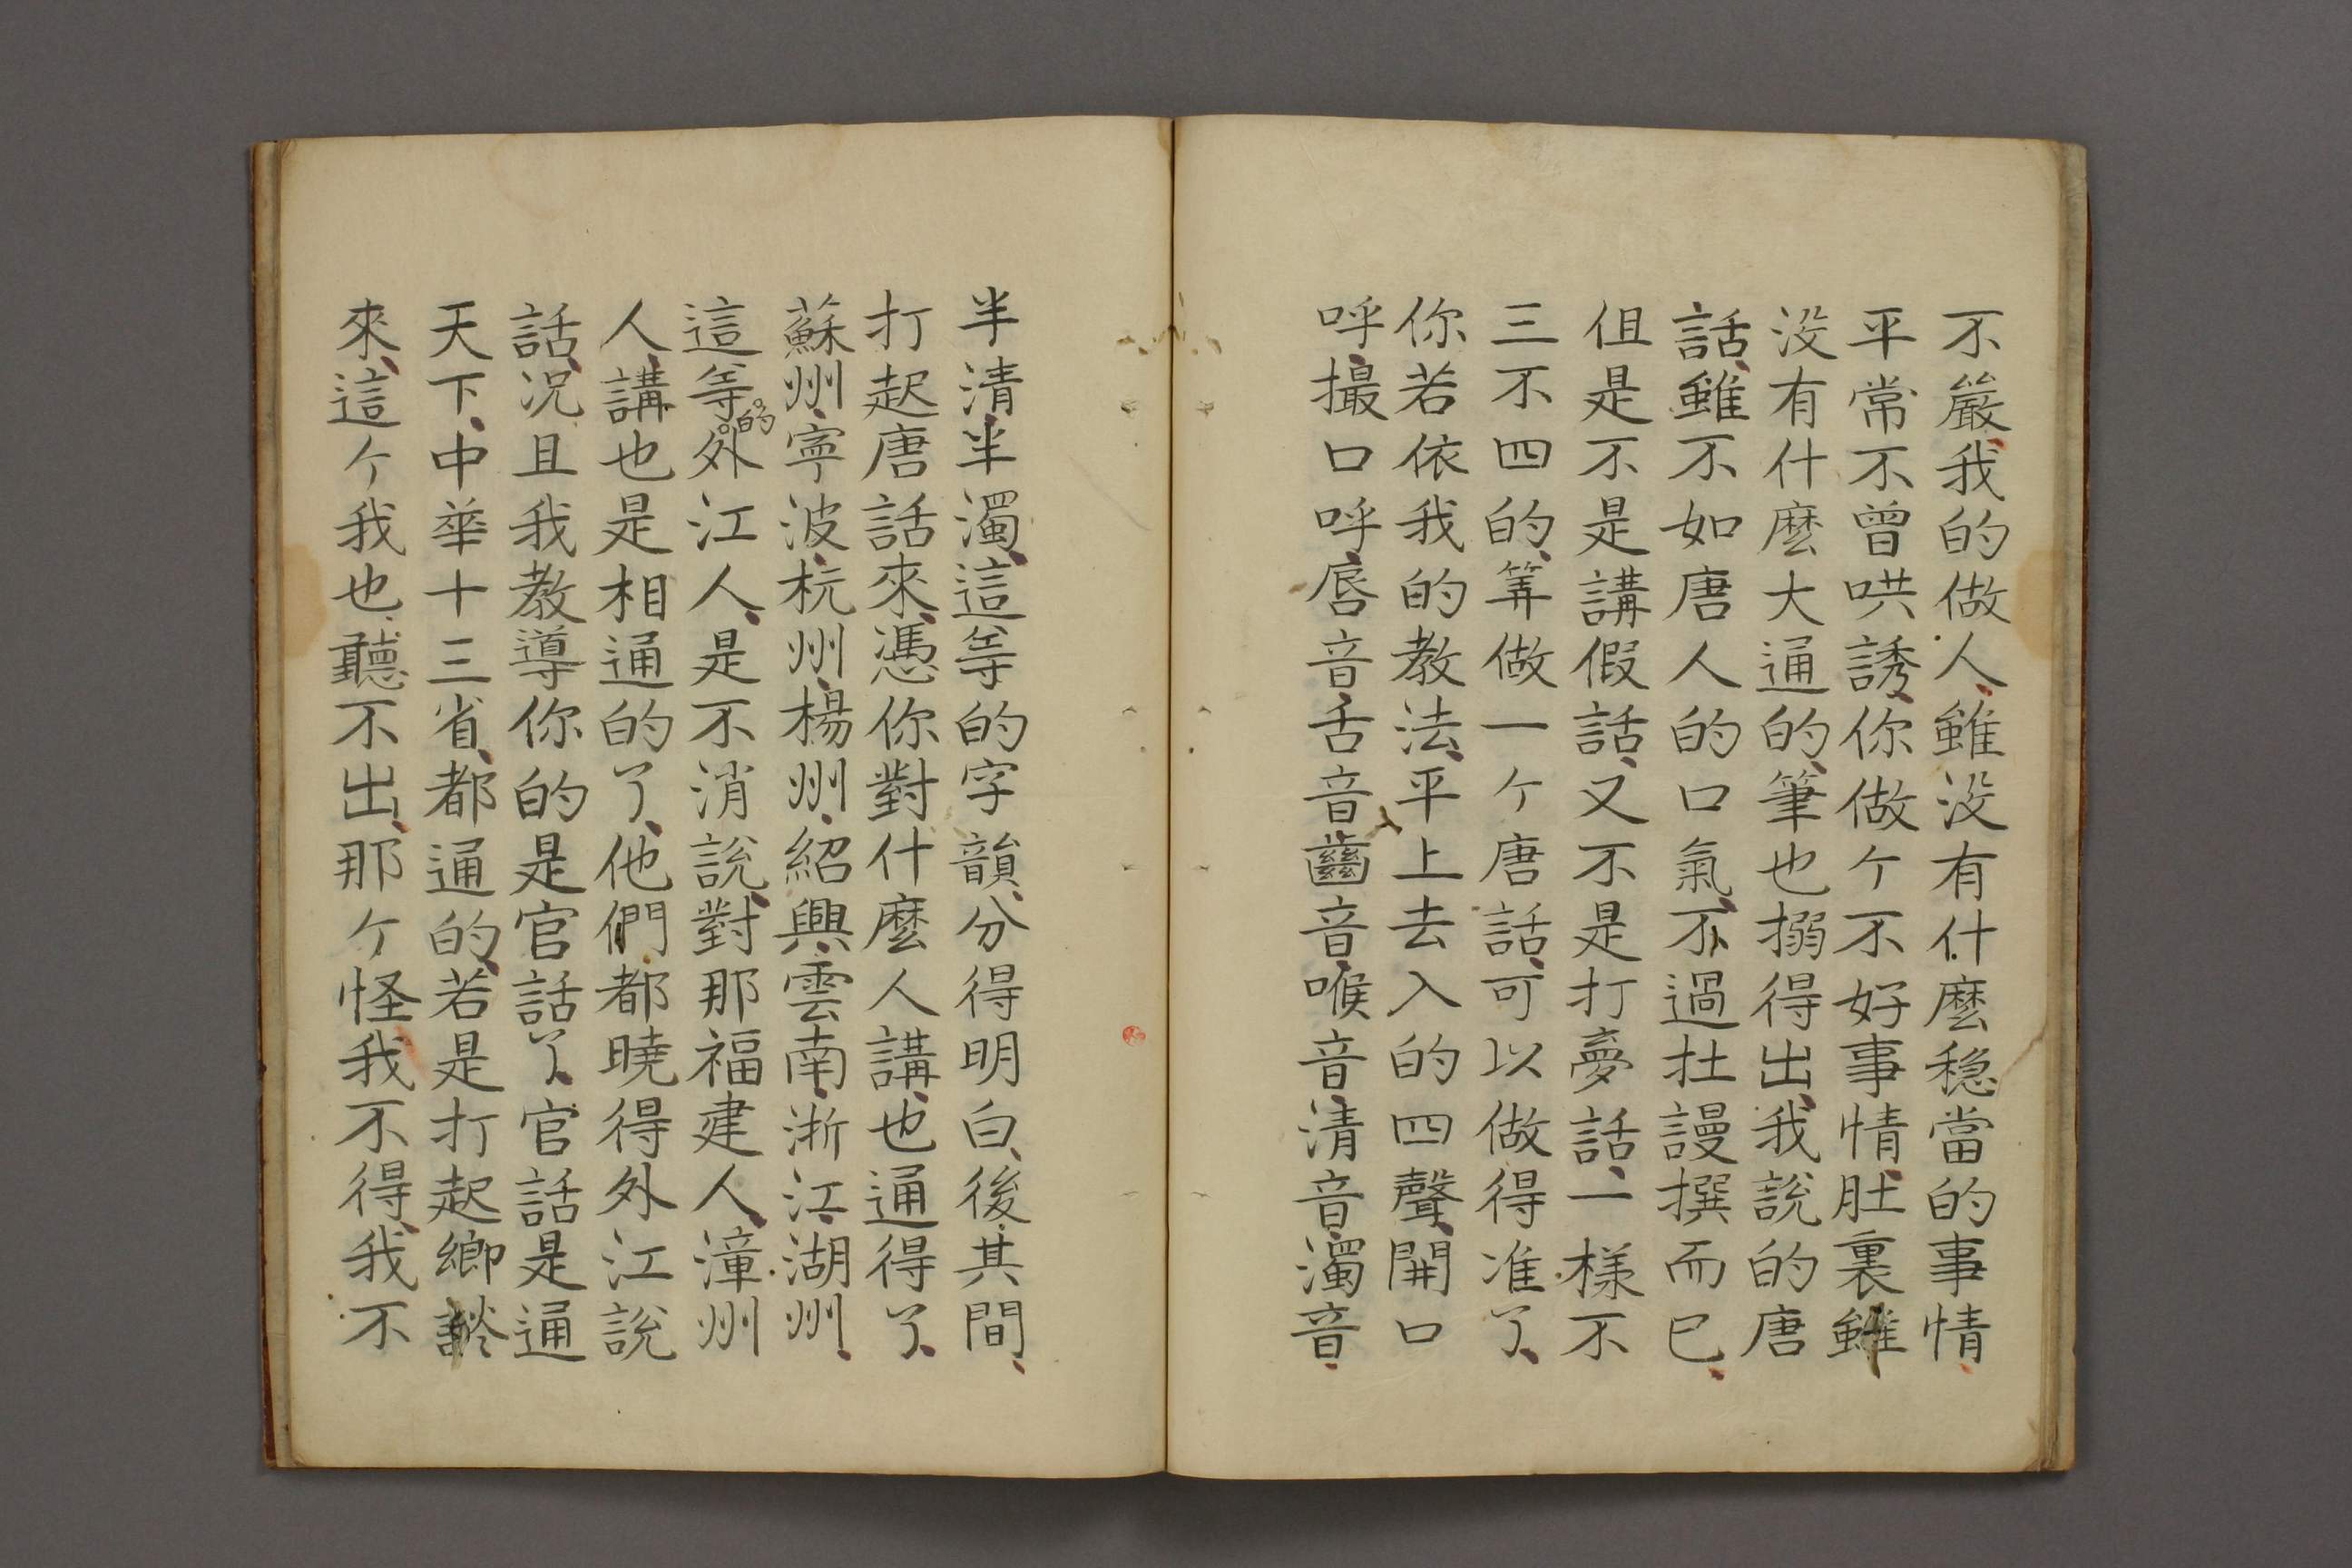 不嚴、我的做人、雖没有什麼穏當的事情、
平常不曾哄誘、你做ケ不好事情、肚裏雖
没有什麼大通的、筆也搦得出、我說的唐
話、雖不如唐人的口氣、不過扗謾撰而已、
但是不是講假話、又不是打夢話、一樣不
三不四的、筭做一ケ唐話、可以做得准了、
你若依我的教法、平上去入的四聲、開口
呼、撮口呼、唇音、舌音、齒音、喉音、清音、濁音、
半清、半濁、這等的字韻、分得明白、後其間、
打起唐話來、憑你對什麼人講、也通得了、
蘇州、寧波、杭州、楊州、紹興、雲南、浙江、湖州、
這等的外江人、是不消說、對那福建人、漳州
人、講也是相通的了、他們都曉得外江說
話、况且我教導你的是官話了、官話是通
天下、中華十三省、都通的、若是打起鄉談
來、這ケ我也、聽不出、那ケ怪我不得、我不